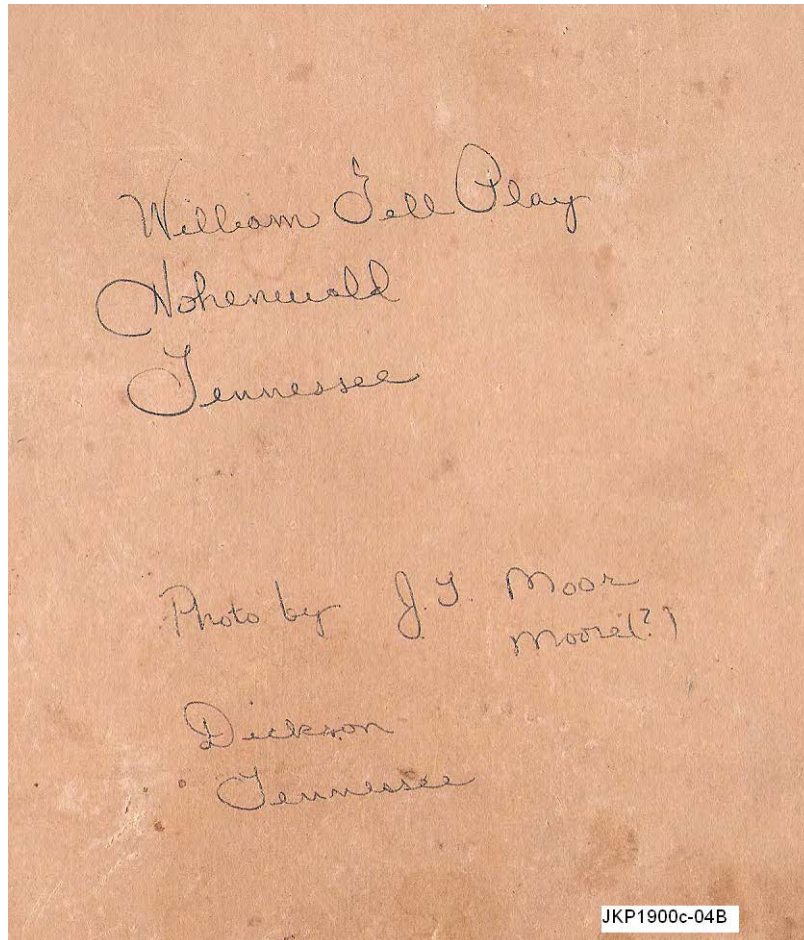 William Tell Play
Hohenwald
Tennessee
Photo by J.T. Moor
Moore(?)
Dickson
Tennessee
JKP1900c-04B